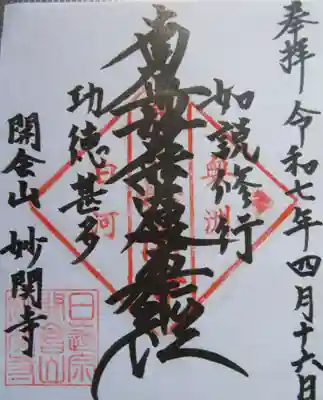 奉拝 令和七年四月十六日
如説修行
南無妙法蓮華経
功徳甚多
開会山 妙関寺
奥州
白河